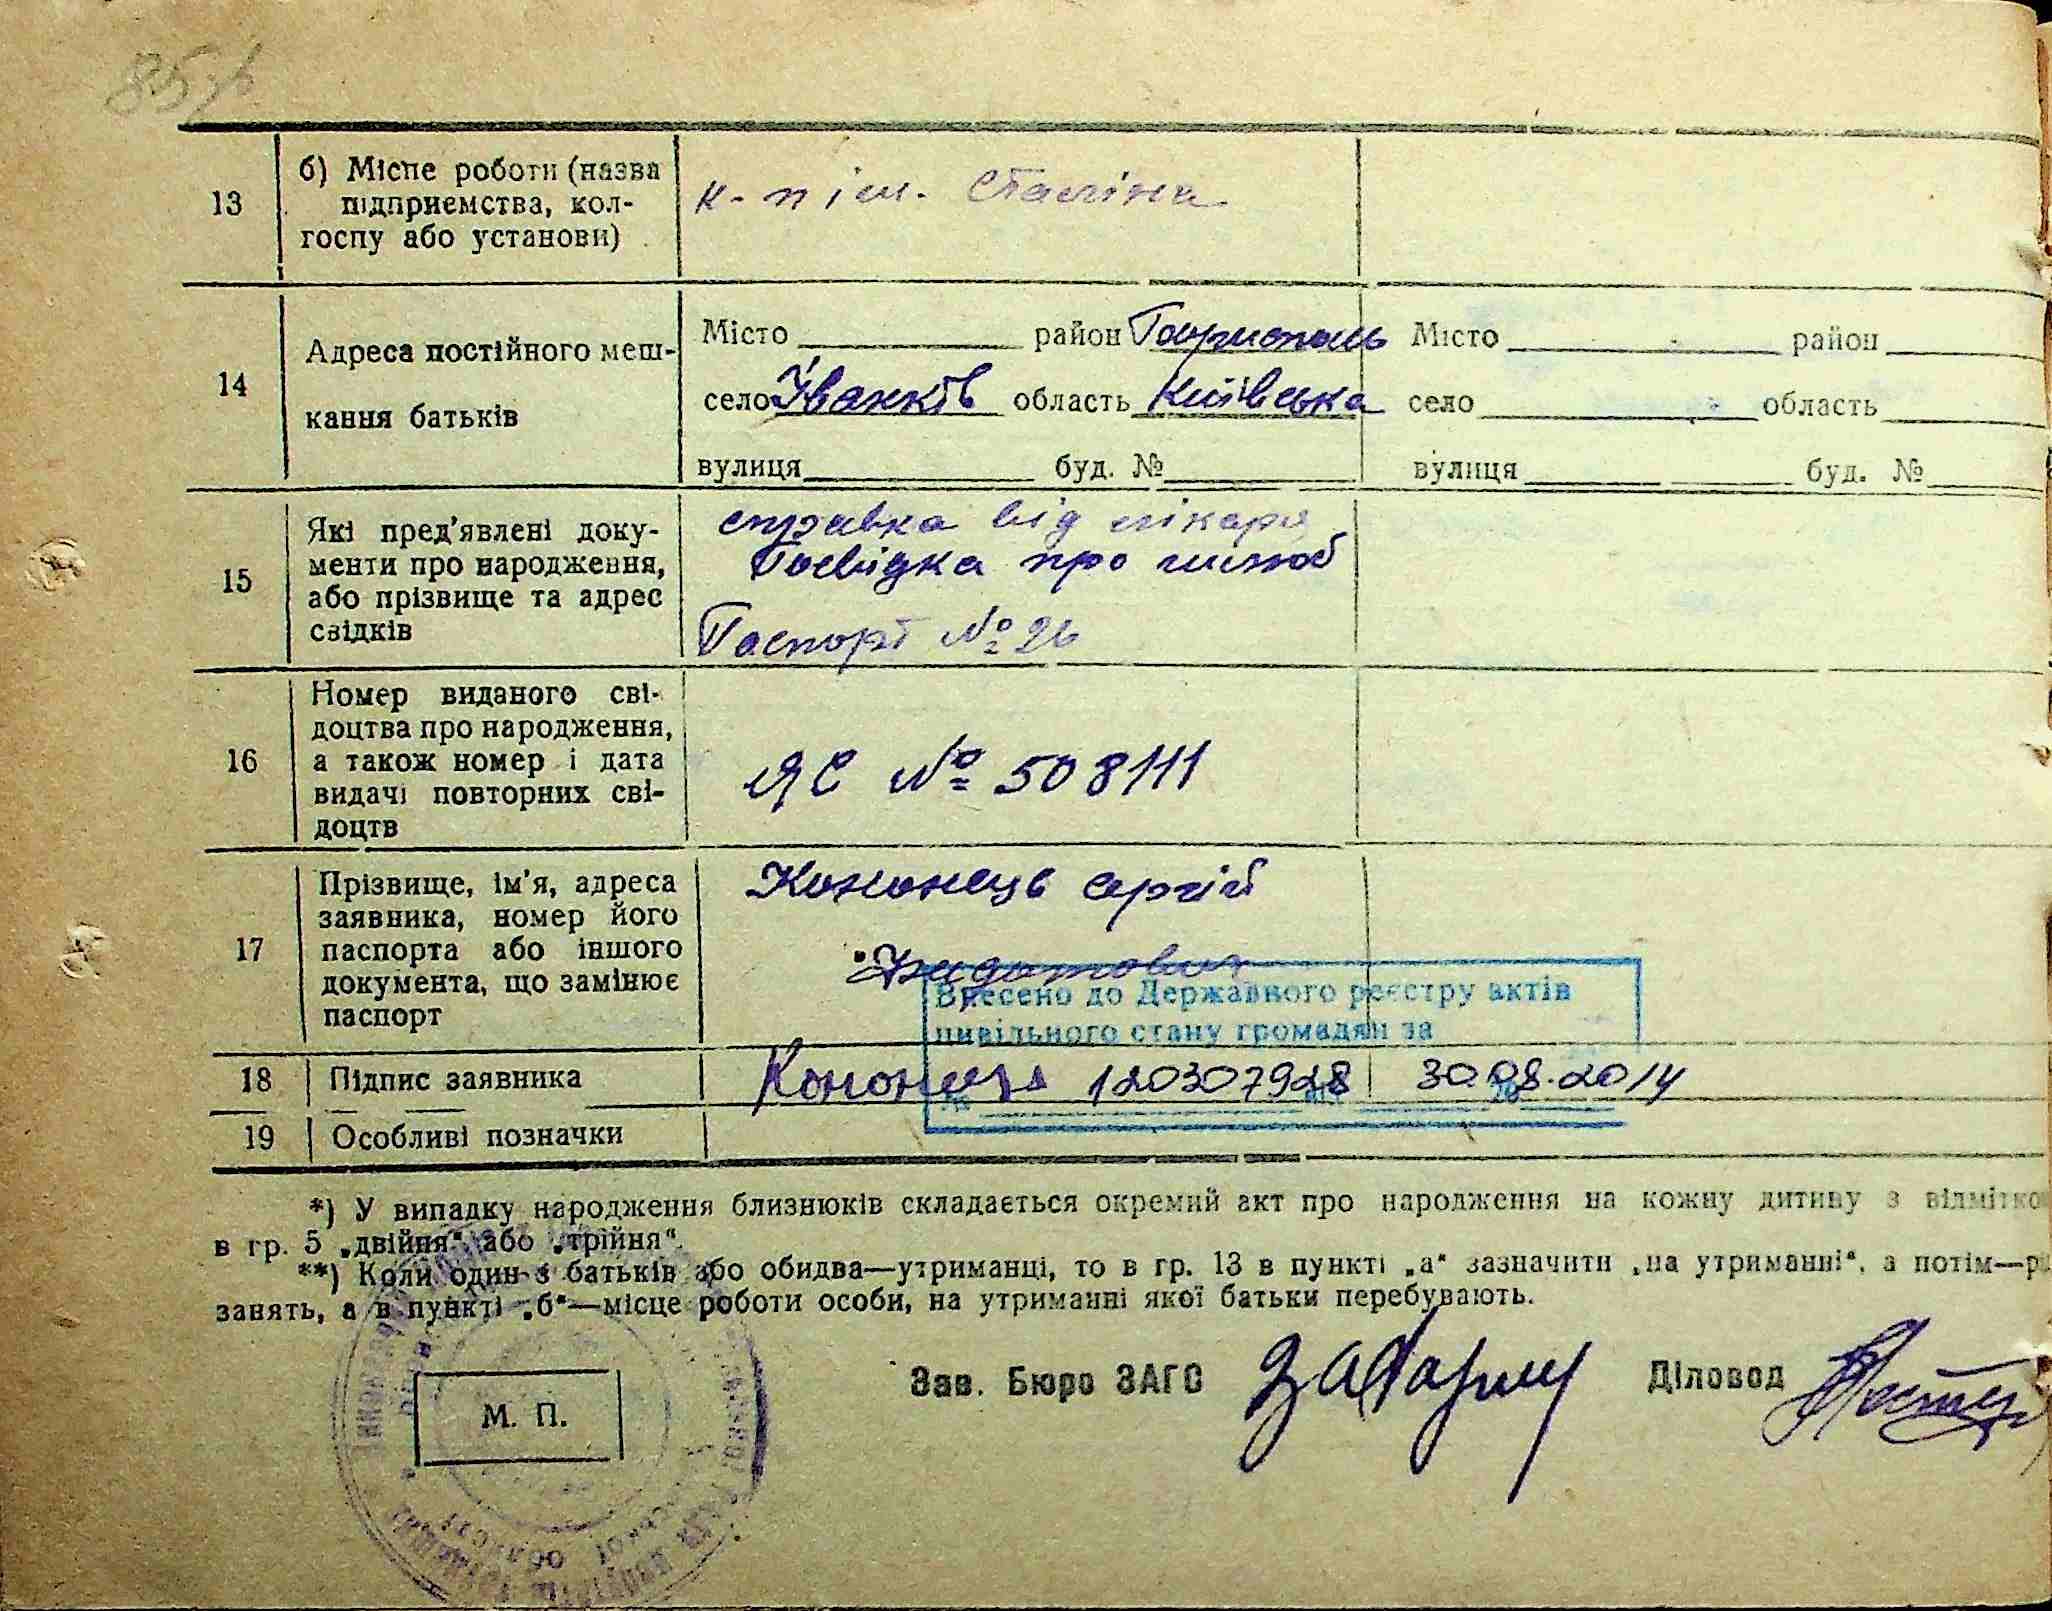 85
13
б) Місце роботи (назва
підприємства, кол-
госпу або установи)
к-п ім. Сталіна
14
Адреса постійного меш-
кання батьків
Місто район Бориспль Місто район
село Іванків область Київська село область
вулиця буд. № вулиця буд. №
15
Які пред'явлені доку-
менти про народження,
або прізвище та адрес
свідків
справка від лікаря
Посвідка про шлюб
Паспорт № 26
16
Номер виданого сві-
доцтва про народження,
а також номер і дата
видачі повторних сві-
доцтв
ЯС № 508111
17
Прізвище, ім'я, адреса
заявника, номер його
паспорта або іншого
документа, що замінює
паспорт
Кононець Сергій
Внесено до Державного реєстру актів
цивільного стану громадян за
18 Підпис заявника Кононець 120307928 30.08.2014
19 Особливі позначки
*) У випадку народження близнюків складається окремий акт про народження на кожну дитину з відмітко
в гр. 5 „двійня" або „трійня".
**) Коли один з батьків або обидва—утриманці, то в гр. 13 в пункті „а" зазначити „на утриманні", а потім—р
занять, а в пункті „б"—місце роботи особи, на утриманні якої батьки перебувають.
Зав. Бюро ЗАГС Діловод
М. П.